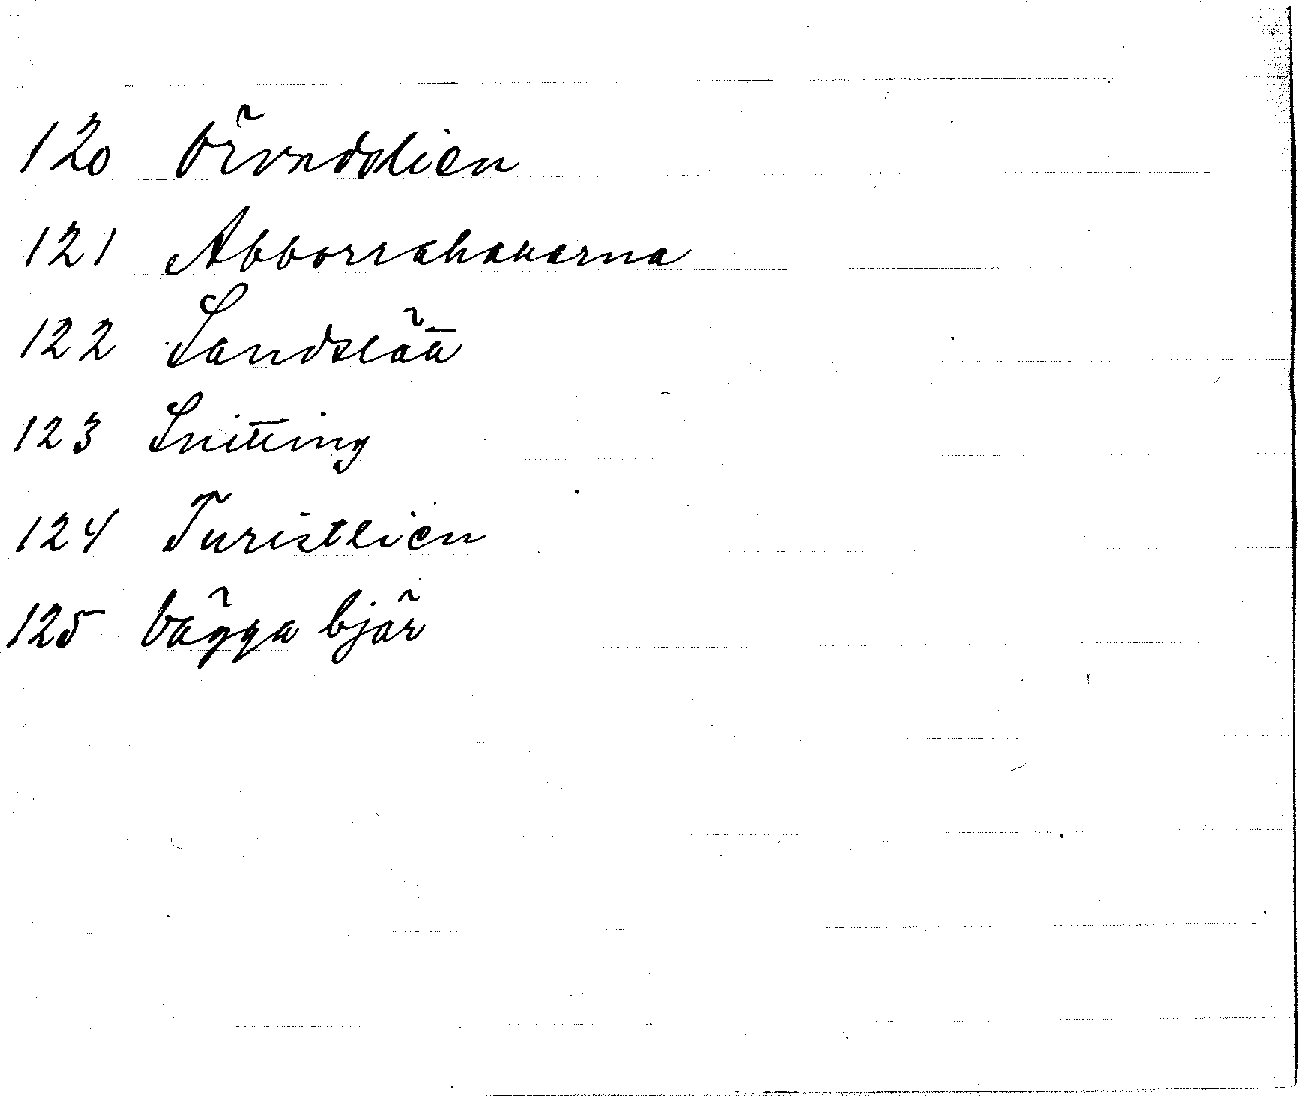 120
121 Abborrahakarna
122 Sandslätt
123 Snitting
124 Turistlien
125 bägga bjär